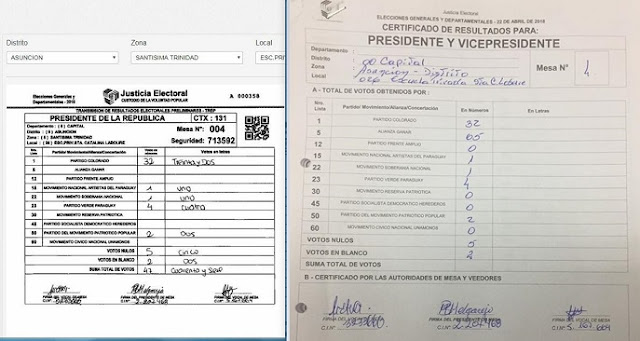 Distrito
Zona
Local
ASUNCION
SANTISIMA TRINIDAD
ESC.PRI
Elecciones Generales y
Departamentales - 2018
Justicia Electoral
CUSTODIO DE LA VOLUNTAD POPULAR
A 000358
TRANSMISION DE RESULTADOS ELECTORALES PRELIMINARES - TREP
PRESIDENTE DE LA REPUBLICA
CTX : 131
Departamento : ( 0 ) CAPITAL
Distrito : ( 0 ) ASUNCION
Zona : ( 6 ) SANTISIMA TRINIDAD
Mesa Nº: 004
Seguridad: 713592
ESC.PRIV.STA. CATALINA LABOURE
Nro. Lista
Partido/ Movimiento/Alianza/Concertación
Votos en números
Votos en letras
1 PARTIDO COLORADO 32 Treinta y Dos
5 ALIANZA GANAR
12 PARTIDO FRENTE AMPLIO
15 MOVIMIENTO NACIONAL ARTISTAS DEL PARAGUAY 1 uno
22 MOVIMIENTO SOBERANIA NACIONAL 1 uno
23 PARTIDO VERDE PARAGUAY 4 cuatro
30 MOVIMIENTO RESERVA PATRIOTICA
45 PARTIDO SOCIALISTA DEMOCRATICO HEREDEROS
50 PARTIDO DEL MOVIMIENTO PATRIOTICO POPULAR 2 Dos
60 MOVIMIENTO CIVICO NACIONAL UNAMONOS
VOTOS NULOS 5 Cinco
VOTOS EN BLANCO 2 Dos
SUMA TOTAL DE VOTOS 47
FIRMA DEL VOCAL DE MESA
FIRMA DEL PRESIDENTE DE MESA
FIRMA DEL VOCAL DE MESA
C.I.Nº
C.I.Nº 2.207.468
C.I.Nº
Justicia Electoral
ELECCIONES GENERALES Y DEPARTAMENTALES - 22 DE ABRIL DE 2018
CERTIFICADO DE RESULTADOS PARA:
PRESIDENTE Y VICEPRESIDENTE
Departamento : 00 Capital
Distrito :
Zona :
Local :
Mesa Nº 4
A - TOTAL DE VOTOS OBTENIDOS POR :
Nro. Lista
Partido/ Movimiento/Alianza/Concertación
En Números
En Letras
1 PARTIDO COLORADO 32
5 ALIANZA GANAR 05
12 PARTIDO FRENTE AMPLIO 0
15 MOVIMIENTO NACIONAL ARTISTAS DEL PARAGUAY 1
22 MOVIMIENTO SOBERANIA NACIONAL 1
23 PARTIDO VERDE PARAGUAY 4
30 MOVIMIENTO RESERVA PATRIOTICA 0
45 PARTIDO SOCIALISTA DEMOCRATICO HEREDEROS 0
50 PARTIDO DEL MOVIMIENTO PATRIOTICO POPULAR 2
60 MOVIMIENTO CIVICO NACIONAL UNAMONOS 0
VOTOS NULOS 5
VOTOS EN BLANCO 2
SUMA TOTAL DE VOTOS
B - CERTIFICADO POR LAS AUTORIDADES DE MESA Y VEEDORES
FIRMA DEL VOCAL DE MESA
FIRMA DEL PRESIDENTE DE MESA
FIRMA DEL VOCAL DE MESA
C.I.Nº
C.I.Nº 2.207.468
C.I.Nº